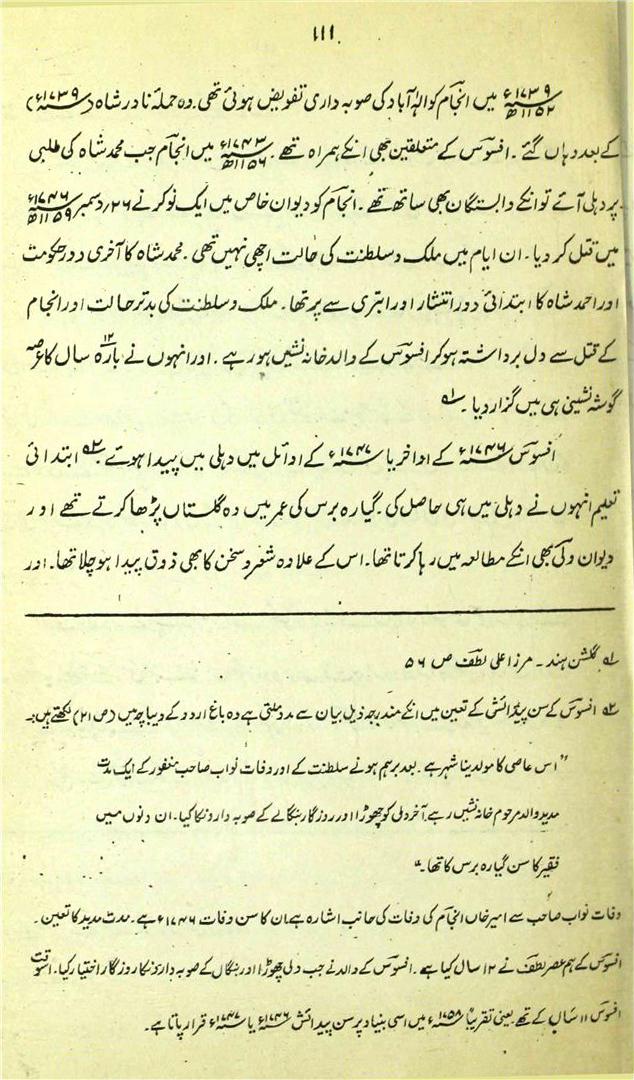 ۱۱۱
۱۷۳۹ء ۱۱۵۲ھ میں انجامؔ کو الہٰ آباد کی صوبہ داری تفویض ہوئی تھی۔ وہ حملۂ نادر شاہ (۱۷۳۹ء)
کے بعد وہاں گئے۔ افسوسؔ کے متعلقین بھی انکے ہمراہ تھے۔ ۱۷۴۳ء ۱۱۵۶ھ میں انجامؔ جب محمد شاہ کی طلبی
پر دہلی آئے تو انکے وابستگان بھی ساتھ تھے۔ انجامؔ کو دیوان خاص میں ایک نوکر نے ۲۶؍دسمبر ۱۷۴۶ء ۱۱۵۹ھ
میں قتل کر دیا۔ ان ایام میں ملک و سلطنت کی حالت اچھی نہیں تھی۔ محمد شاہ کا آخری دور حکومت
اور احمد شاہ کا ابتدائی دور انتشار اور ابتری سے پر تھا۔ ملک و سلطنت کی بدتر حالت اور انجام
کے قتل سے دل برداشتہ ہو کر افسوسؔ کے والد خانہ نشیں ہو رہے۔ اور انہوں نے بارہ ۱۲ سال کا عرصہ
گوشہ نشینی ہی میں گزار دیا۔ ۱؎
افسوسؔ ۱۷۴۶ء کے اواخر یا ۱۷۴۷ء کے اوائل میں دہلی میں پیدا ہوئے ۲؎ ابتدائی
تعلیم انہوں نے دہلی میں ہی حاصل کی۔ گیارہ برس کی عمر میں وہ گلستاں پڑھا کرتے تھے اور
دیوان ولیؔ بھی انکے مطالعہ میں رہا کرتا تھا۔ اس کے علاوہ شعر و سخن کا بھی ذوق پیدا ہو چلا تھا۔ اور
۱؎ گلشن ہند۔ مرزا علی لطفؔ ص ۵۶
۲؎ افسوسؔ کے سن پیدائش کے تعین میں انکے مندرجہ ذیل بیان سے مدد ملتی ہے وہ باغ اردو کے دیباچہ میں (ص ۲۱) لکھتے ہیں:۔
"اس عاصی کا مولد یہ شہر ہے۔ بعد برہم ہونے سلطنت کے اور وفات نواب صاحب مغفور کے ایک مدت
مدید والد مرحوم خانہ نشیں رہے۔ آخر دلی کو چھوڑا اور روزگار بنگالے کے صوبہ دار و نکا کیا۔ ان دنوں میں
فقیر کا سن گیارہ برس کا تھا۔"
وفات نواب صاحب سے امیر خاں انجامؔ کی وفات کی جانب اشارہ ہے۔ ان کا سن وفات ۱۷۴۶ء ہے۔ مدت مدید کا تعین۔
افسوسؔ کے ہم عصر لطفؔ نے ۱۲ سال کیا ہے۔ افسوسؔ کے والد نے جب دلی چھوڑا اور بنگال کے صوبہ دارونکا روزگار اختیار کیا۔ اسوقت
افسوسؔ ۱۱ سال کے تھے یعنی تقریباً ۱۷۵۸ء میں اسی بنیاد پر سن پیدائش ۱۷۴۶ء یا ۱۷۴۷ء قرار پاتا ہے۔